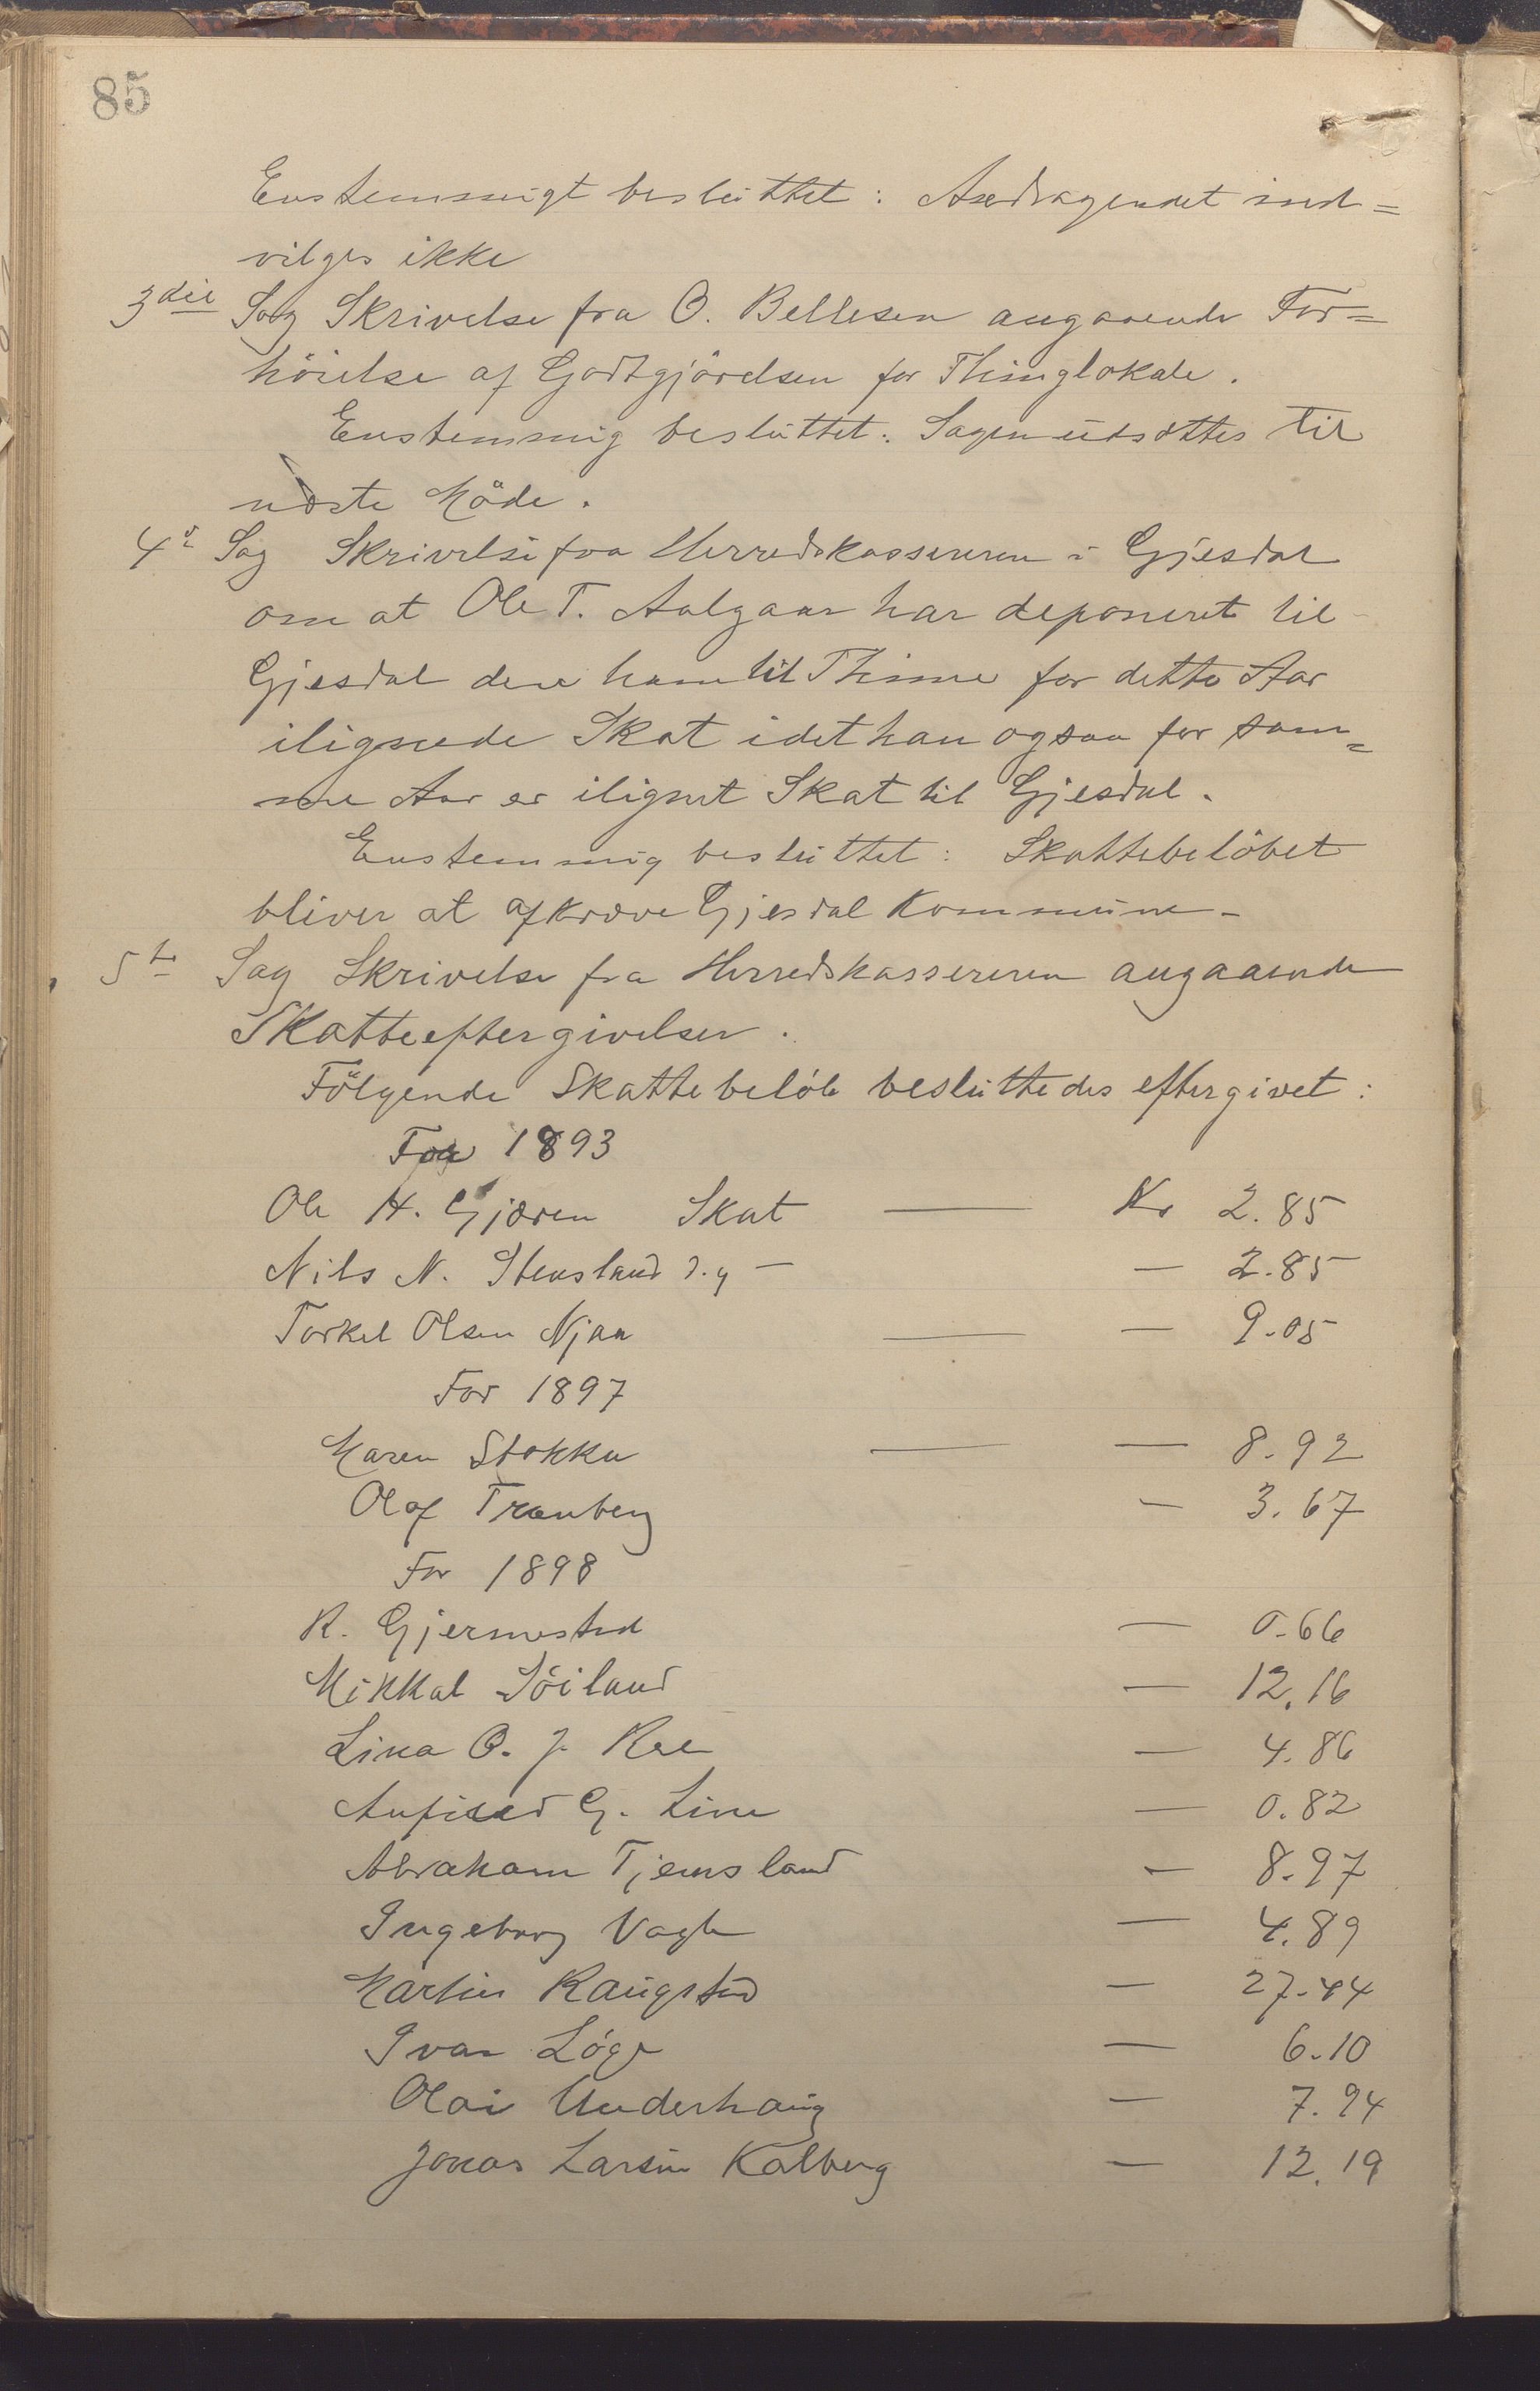 85
Enstemmigt besluttet: Andragendet ind=
vilges ikke
3die Sag Skrivelse fra O. Bellesen angaaende For=
höielse af Godtgjörelsen for Thinglokale.
Enstemmig besluttet: Sagen udsættes til
næste Möde.
4de Sag Skrivelse fra Herredskassereren i Gjesdal
om at Ole T. Aalgaar har deponeret til
Gjesdal den ham til Thime for dette Aar
ilignede Skat idet han ogsaa for sam=
me Aar er ilignet Skat til Gjesdal.
Enstemmig besluttet: Skattebelöbet
bliver at afkræve Gjesdal Kommune.
5te Sag Skrivelse fra Herredskassereren angaaende
Skatteeftergivelser.
Fölgende Skattebelöb besluttedes eftergivet:
For 1893
Ole H. Gjæren Skat — Kr 2.85
Nils N. Stensland d.y — — 2.85
Torkel Olsen Njaa — — 9.05
For 1897
Maren Stokka — — 8.92
Olaf Tranberg — 3.67
For 1898
R. Gjermestad — 0.66
Mikkal Söiland — 12.16
Lina O. J. Ree — 4.86
G. Line — 0.82
Abraham Tjensland — 8.97
Ingeborg Vagle — 4.89
Martin Raugstad — 27.44
Ivar Löge — 6.10
Olai Underhaug — 7.94
Jonas Larsen Kalberg — 12.19